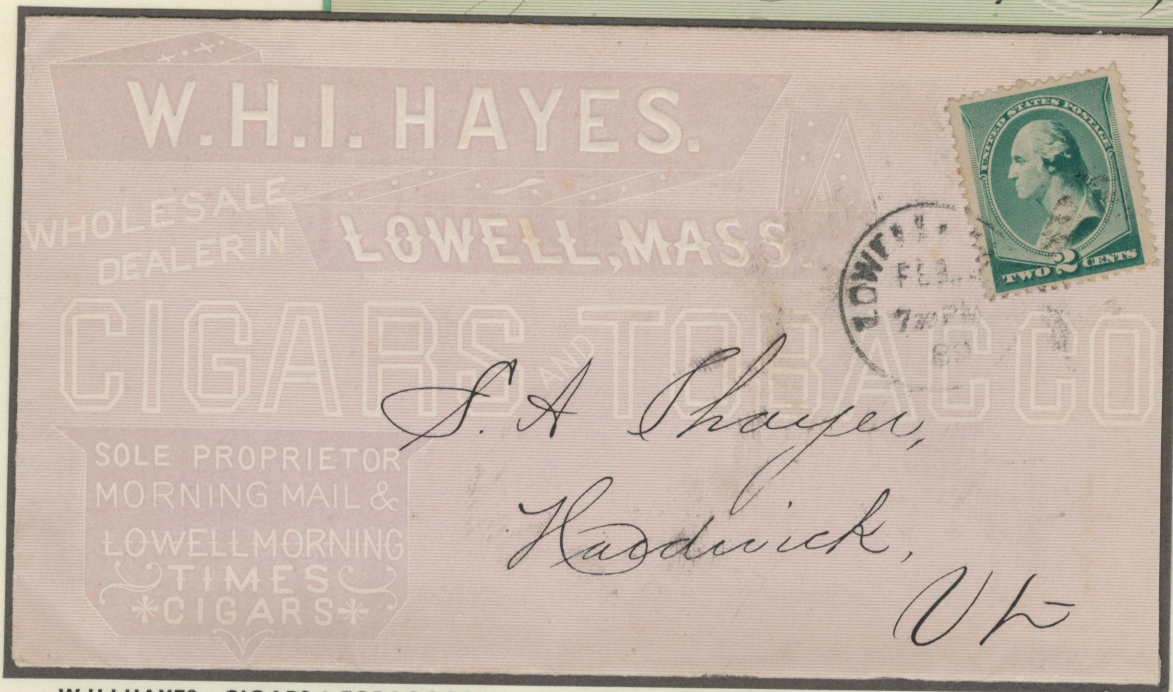 W.H.I. HAYES.
WHOLESALE
DEALER IN
LOWELL, MASS.
CIGARS AND TOBACCO
SOLE PROPRIETOR
MORNING MAIL &
LOWELL MORNING
TIMES
*CIGARS*
UNITED STATES POSTAGE
TWO 2 CENTS
LOWELL
FEB
7 30 PM
S. A Thayer,
Hardwick,
Vt